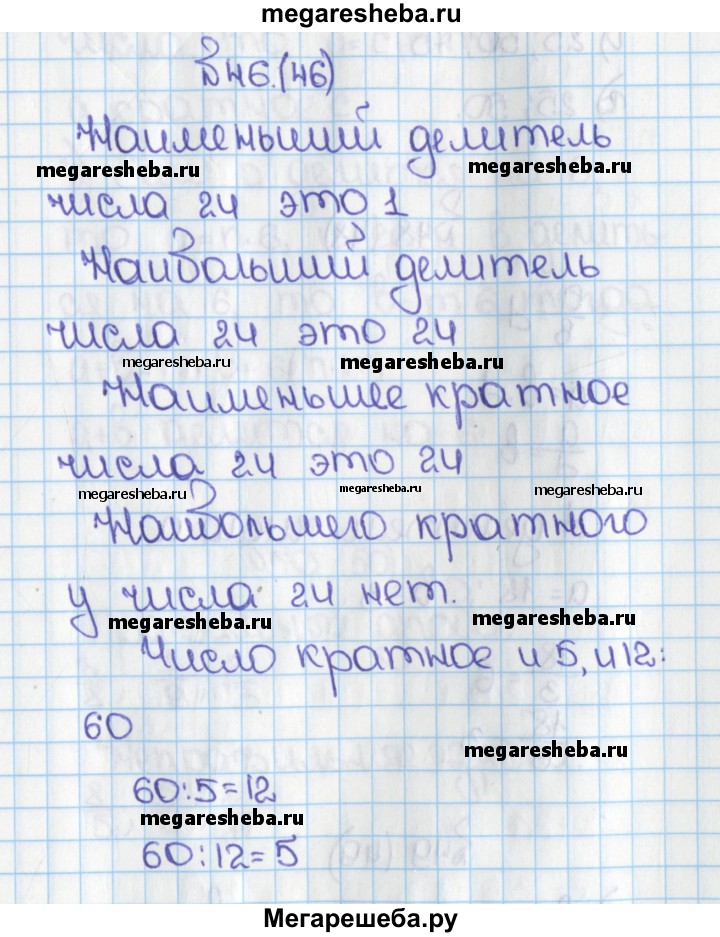 megaresheba.ru
В 46.(46)
Наименьший делитель
megaresheba.ru megaresheba.ru
числа 24 это 1
Наибольший делитель
числа 24 это 24
megaresheba.ru megaresheba.ru
Наименьшее кратное
числа 24 это 24
megaresheba.ru megaresheba.ru megaresheba.ru
Наибольшего кратного
у числа 24 нет.
megaresheba.ru megaresheba.ru
Число кратное и 5, и 12:
60
megaresheba.ru
60:5=12
megaresheba.ru
60:12=5
Мегарешеба.ру